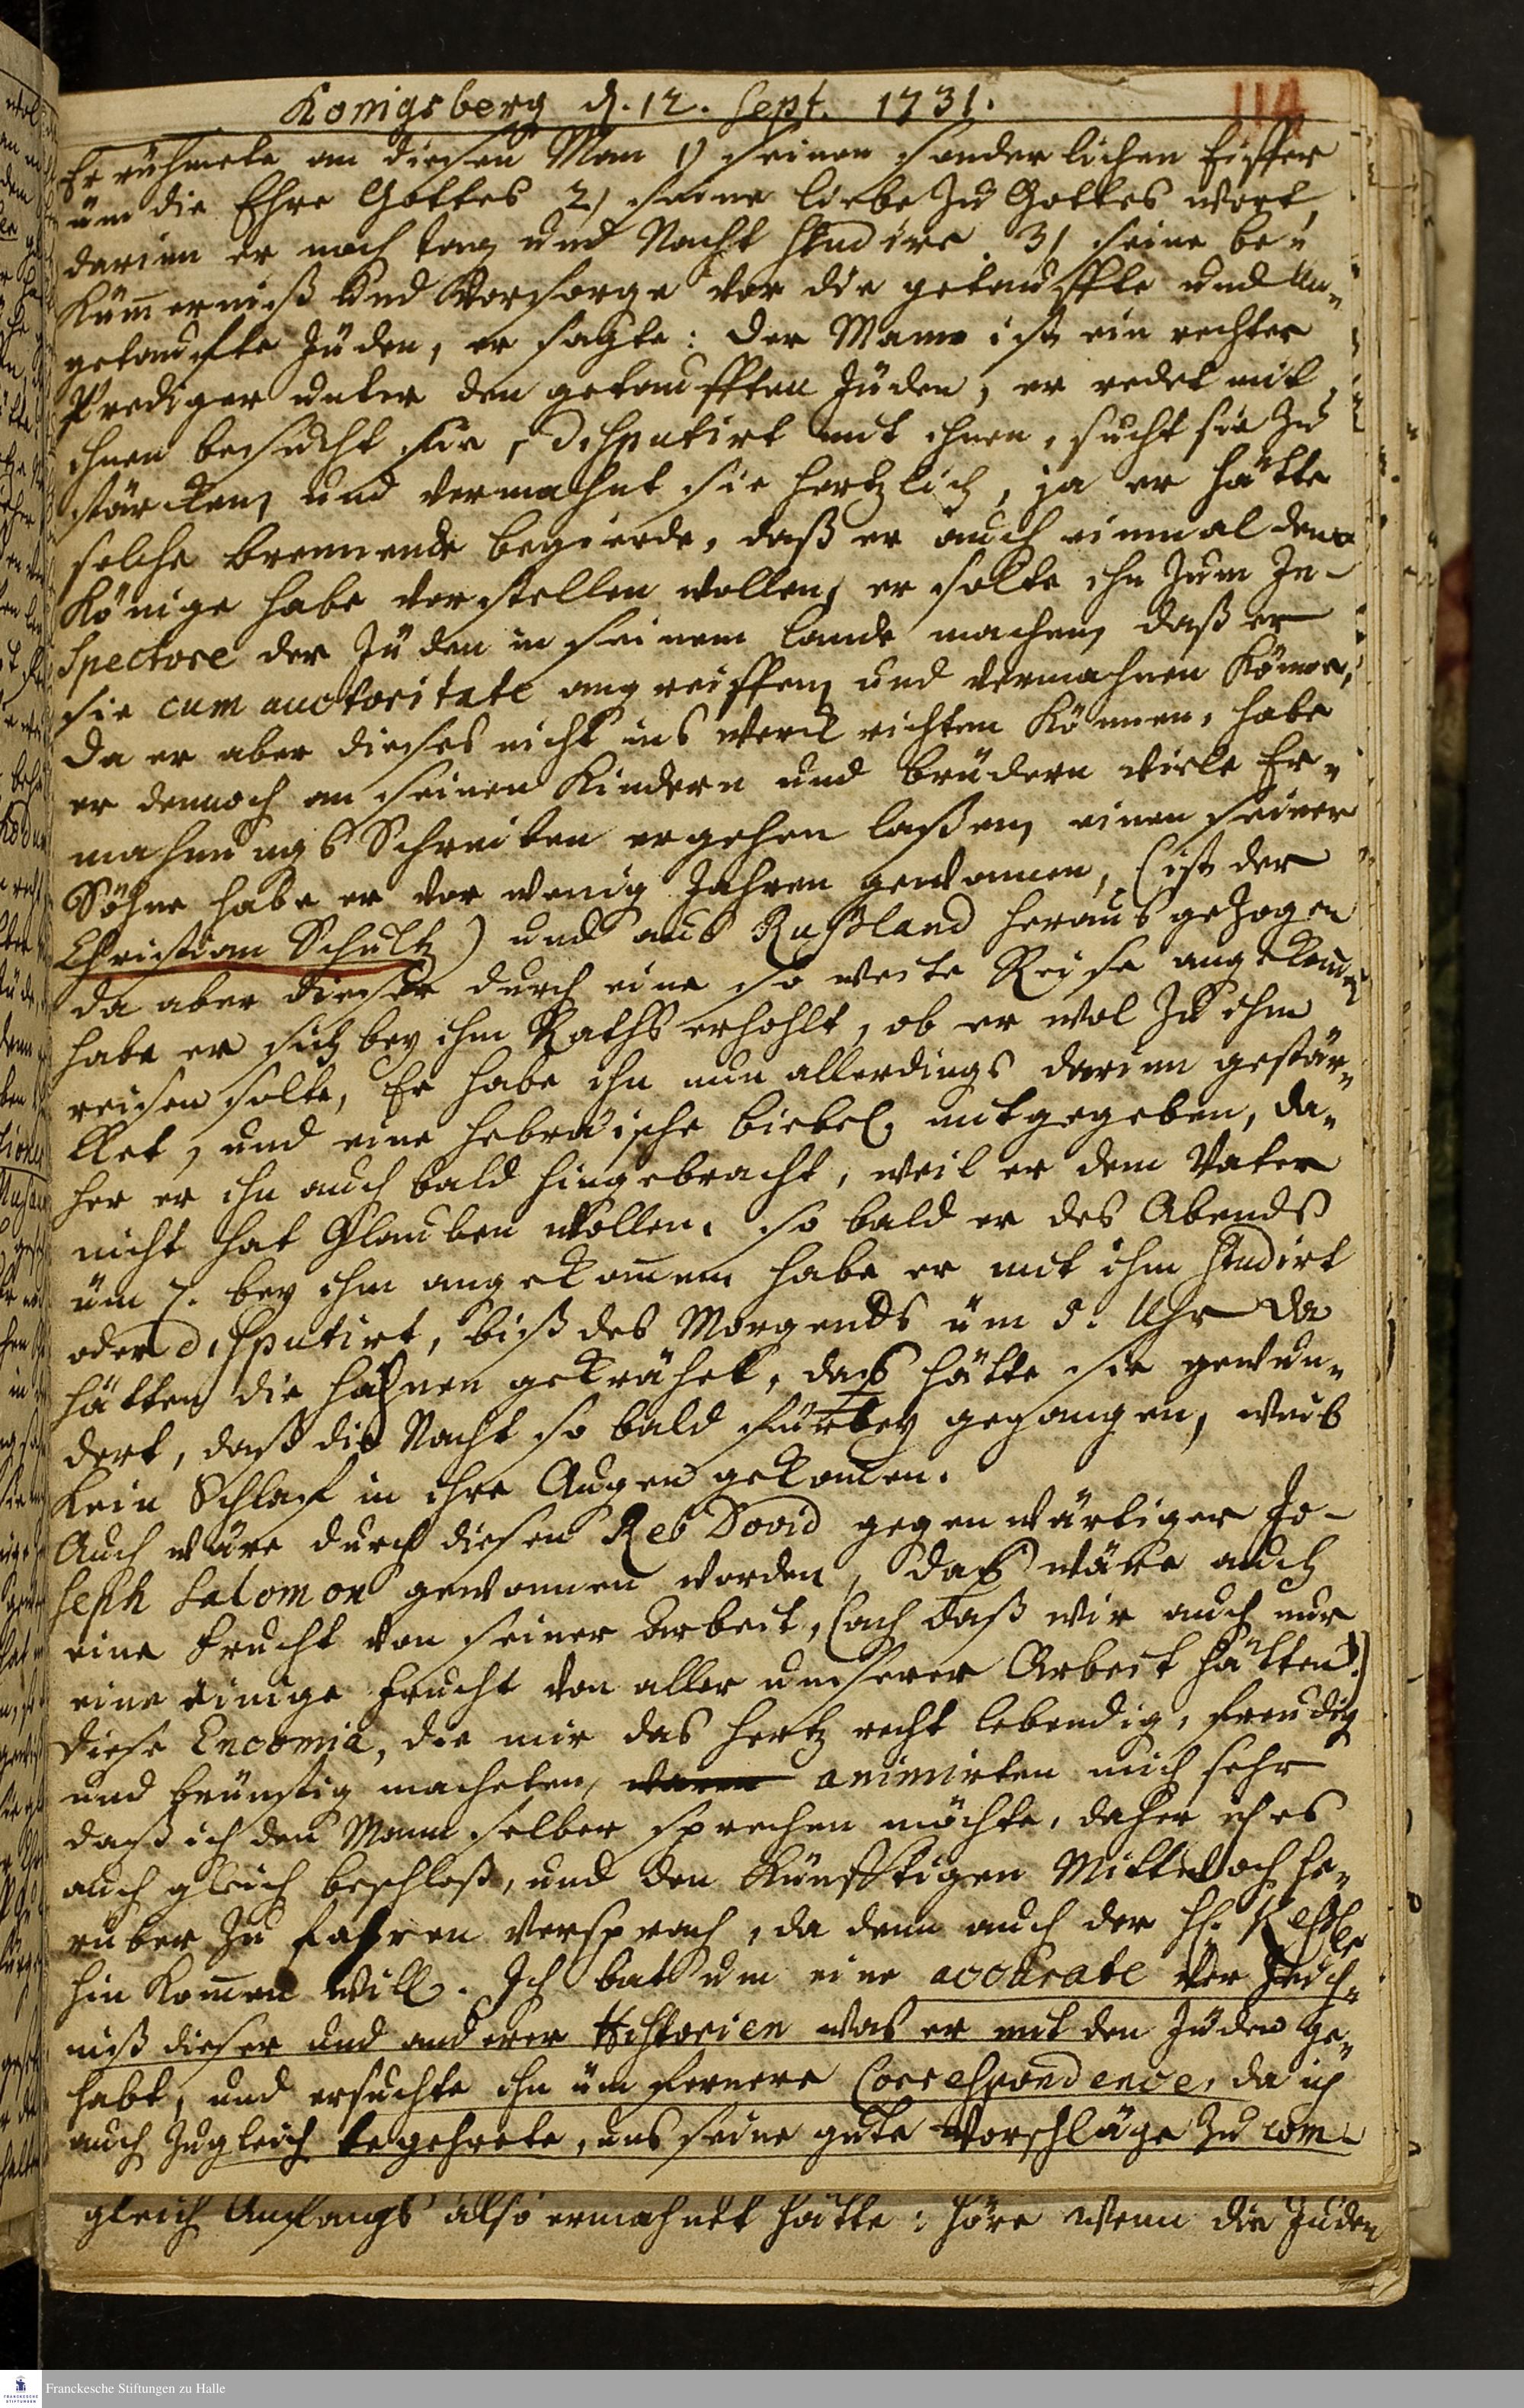 Konigsberg d. 12. Sept. 1731.
114
Er rühmete an diesen Man 1) seinen sonderlichen Eiffer
üm die Ehre Gottes 2) seine liebe Zu Gottes wort,
darinn er noch tag und Nacht studire. 3) seine be-
Küm̅erniß und Vorsorge vor die getauffte und Un-
getauffte Jüden, er sagte: der Mann ist ein rechter
Prediger unter den getaufften Jüden, er redet mit
ihnen besucht sie, disputirt mit ihnen, sucht sie Zu
stärcken, und vermahnt sie hertzlich, ja er hätte
solche brennende begierde, daß er auch einmal dem
Könige habe vorstellen wollen, er solte ihn Zum In-
spectore der Jüden in seinem lande machen, daß er
sie cum auctoritate angreiffen, und vermahnen Könne,
Da er aber dieses nicht ins werck richten Können, habe
er dennoch an seinen Kindern und brüdern viele Er-
mahnungs Schreiben ergehen laßen, einen seiner
Söhne habe er vor wenig Jahren gewonnen, (ist der
Christian Schultz) und aus Rußland herausgezogen
da aber dieser durch eine so weite Reise angekom̅en
habe er sich bey ihm Raths erhohlt, ob er wol Zu ihm
reisen solte, Er habe ihn nun allerdings darinn gestär-
cket, und eine hebräische biebel mitgegeben, da-
her er ihn auch bald hingebracht, weil er dem Vater
nicht hat Glauben wollen. so bald er des Abends
üm 7. bey ihm angekom̅en habe er mit ihm studirt
oder disputirt, biß des Morgends üm 5. Uhr da
hätten die hähnen gekrähet, das hätte sie gewun-
dert, daß die Nacht so bald fürbey gegangen, weil
Kein Schlaf in ihre Augen gekom̅en.
Auch wäre durch diesen Reb Dovid gegenwärtiger Jo-
seph Salomon gewonnen worden, das wäre auch
eine Frucht von seiner arbeit, (ach daß wir auch nur
eine einige Frucht von aller unserer Arbeit hätten!)
Diese Encomia, die mir das hertz recht lebendig, freudig
und brünstig macheten, waren animirten mich sehr
daß ich den Mann selber sprechen möchte, daher ich es
auch gleich beschloß, und den Künfftigen Mittwoch he-
rüber Zu fahren versprach, da denn auch der H.
hin Kom̅en will. Ich bat um eine accurate Verzeich-
niß dieser und anderer Historien was er mit den Jüden ge-
habt, und ersuchte ihn üm fernere Correspondence, da ich
auch Zugleich begehrete, uns seine gute Vorschläge Zu com-
gleich Anfangs also ermahnet hätte: höre wenn die Juden
Franckesche Stiftungen zu Halle